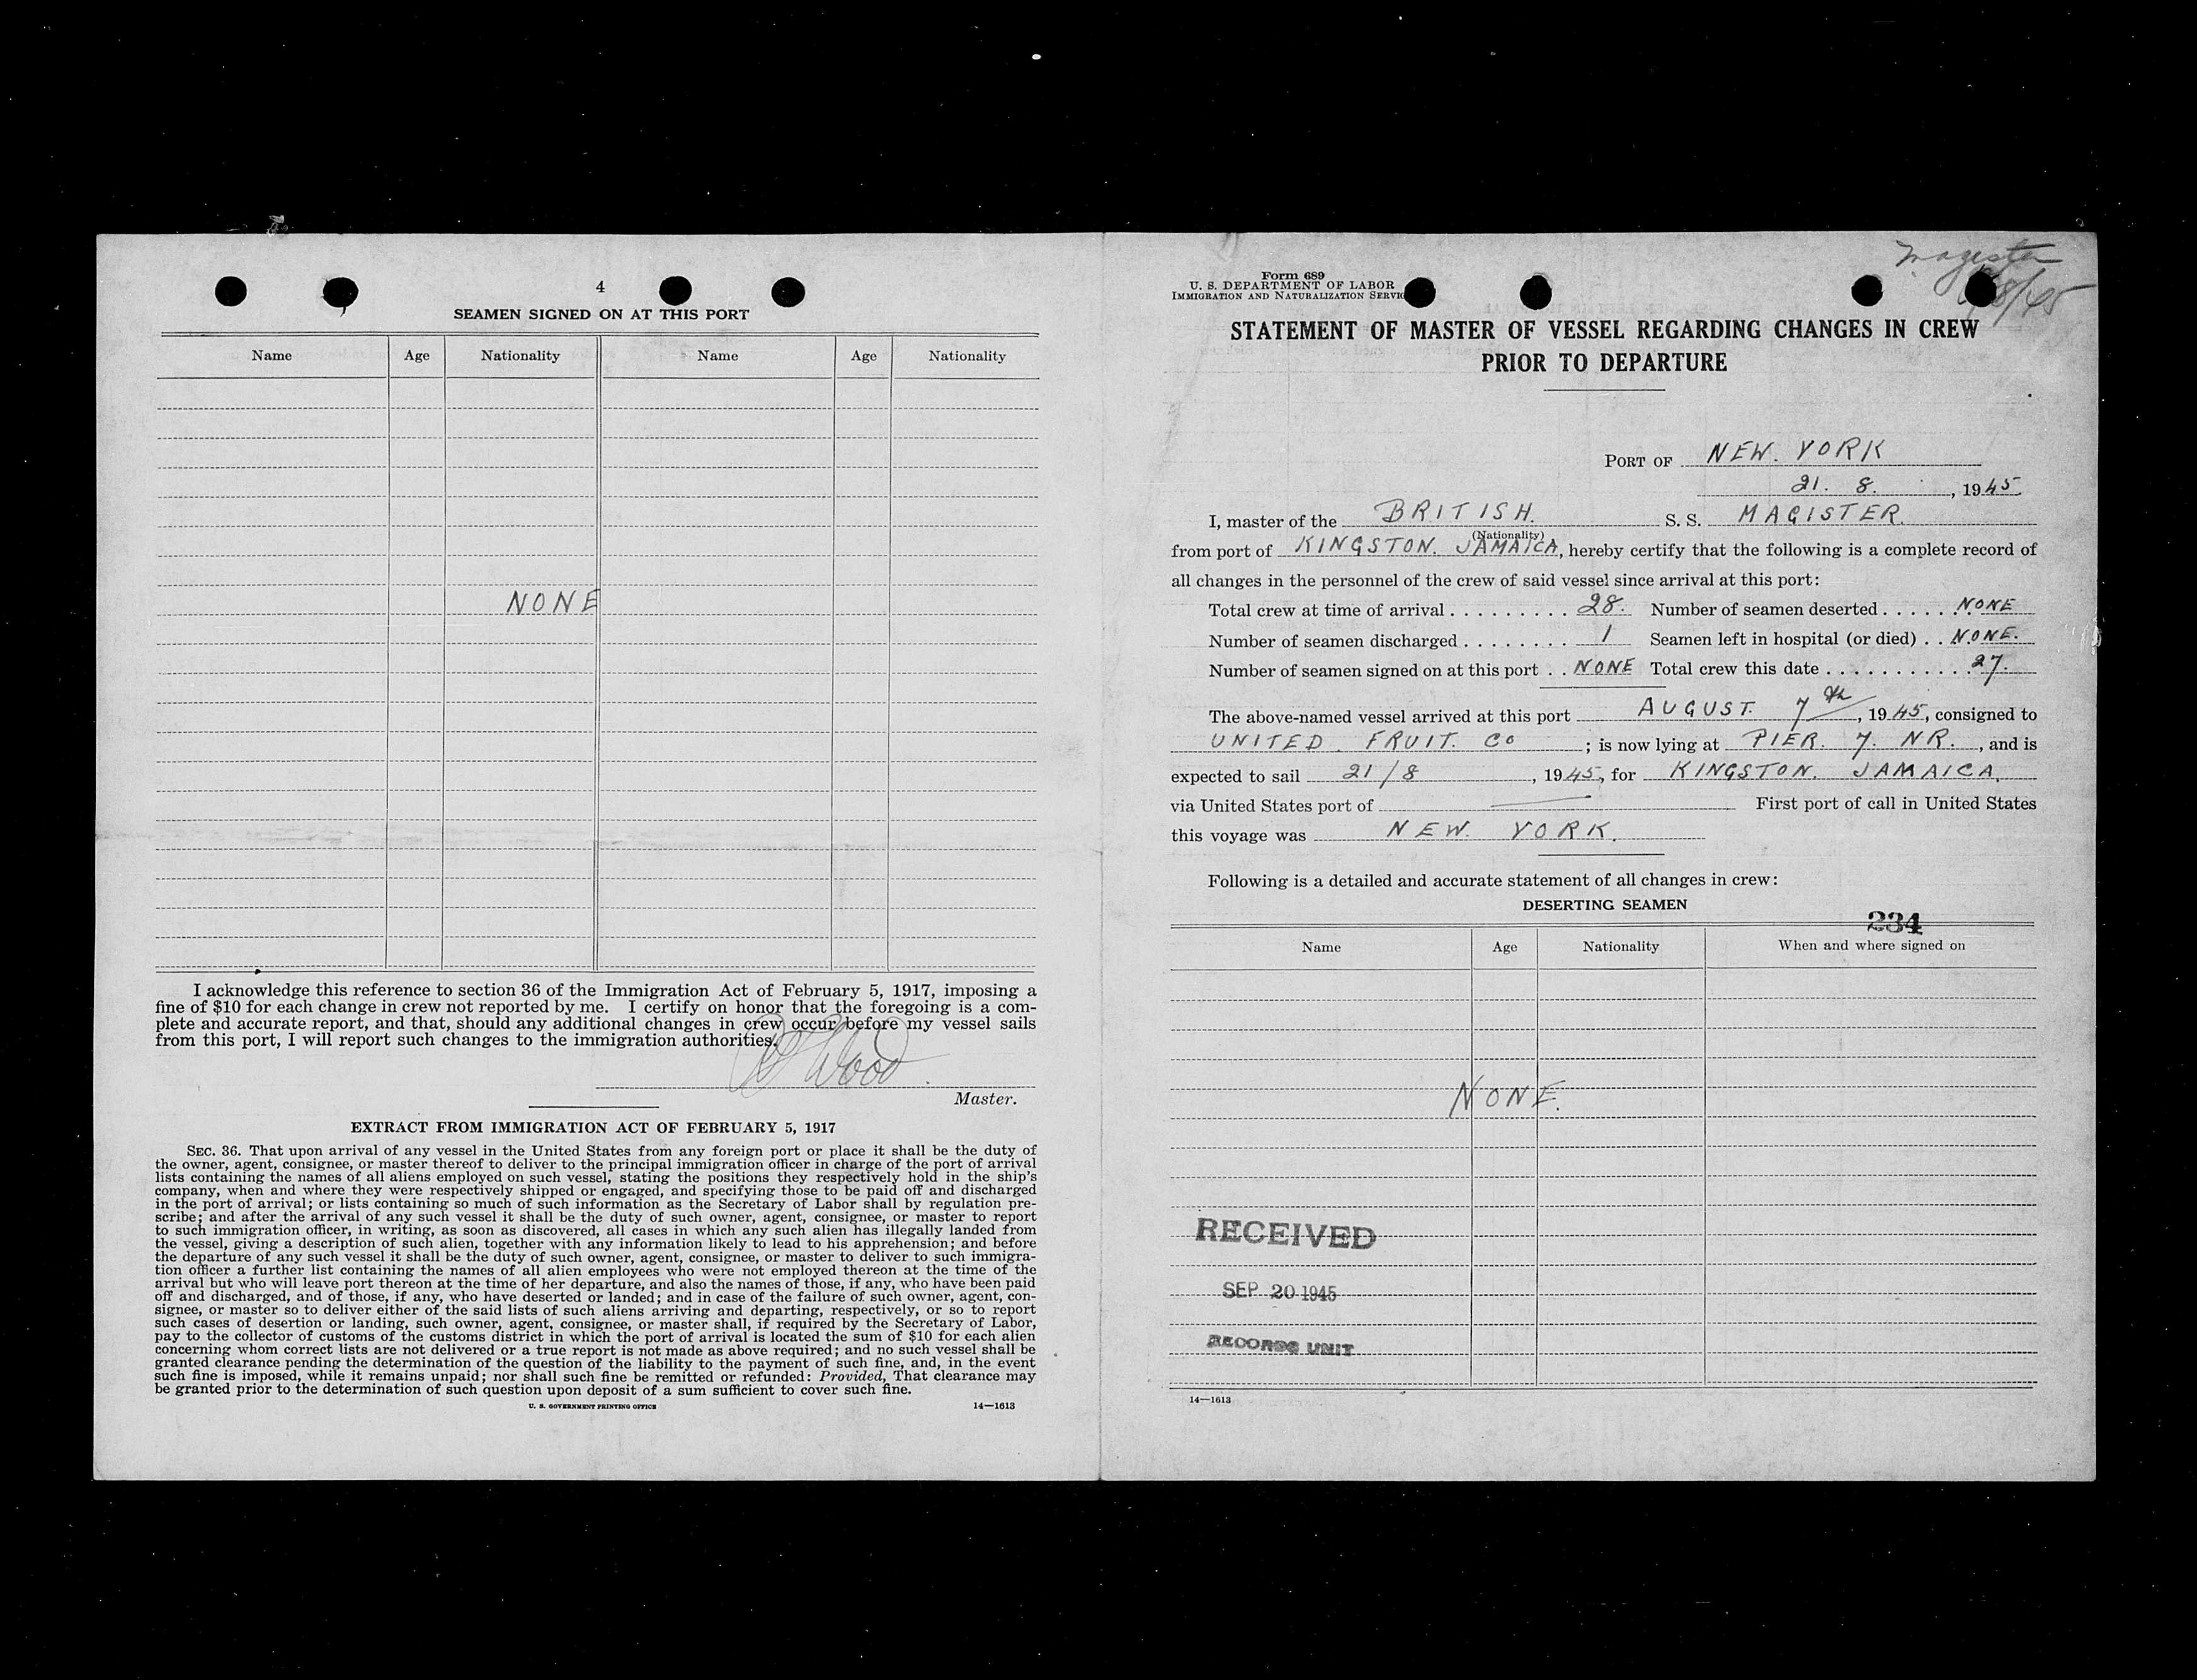 4
SEAMEN SIGNED ON AT THIS PORT
Name Age Nationality Name Age Nationality
NONE
I acknowledge this reference to section 36 of the Immigration Act of February 5, 1917, imposing a
fine of $10 for each change in crew not reported by me. I certify on honor that the foregoing is a com-
plete and accurate report, and that, should any additional changes in crew occur before my vessel sails
from this port, I will report such changes to the immigration authorities.
Wood
Master.
EXTRACT FROM IMMIGRATION ACT OF FEBRUARY 5, 1917
SEC. 36. That upon arrival of any vessel in the United States from any foreign port or place it shall be the duty of
the owner, agent, consignee, or master thereof to deliver to the principal immigration officer in charge of the port of arrival
lists containing the names of all aliens employed on such vessel, stating the positions they respectively hold in the ship's
company, when and where they were respectively shipped or engaged, and specifying those to be paid off and discharged
in the port of arrival; or lists containing so much of such information as the Secretary of Labor shall by regulation pre-
scribe; and after the arrival of any such vessel it shall be the duty of such owner, agent, consignee, or master to report
to such immigration officer, in writing, as soon as discovered, all cases in which any such alien has illegally landed from
the vessel, giving a description of such alien, together with any information likely to lead to his apprehension; and before
the departure of any such vessel it shall be the duty of such owner, agent, consignee, or master to deliver to such immigra-
tion officer a further list containing the names of all alien employees who were not employed thereon at the time of the
arrival but who will leave port thereon at the time of her departure, and also the names of those, if any, who have been paid
off and discharged, and of those, if any, who have deserted or landed; and in case of the failure of such owner, agent, con-
signee, or master so to deliver either of the said lists of such aliens arriving and departing, respectively, or so to report
such cases of desertion or landing, such owner, agent, consignee, or master shall, if required by the Secretary of Labor,
pay to the collector of customs of the customs district in which the port of arrival is located the sum of $10 for each alien
concerning whom correct lists are not delivered or a true report is not made as above required; and no such vessel shall be
granted clearance pending the determination of the question of the liability to the payment of such fine, and, in the event
such fine is imposed, while it remains unpaid; nor shall such fine be remitted or refunded: Provided, That clearance may
be granted prior to the determination of such question upon deposit of a sum sufficient to cover such fine.
U. S. GOVERNMENT PRINTING OFFICE 14—1613
Magister
Form 689
U. S. DEPARTMENT OF LABOR
IMMIGRATION AND NATURALIZATION SERVIC
STATEMENT OF MASTER OF VESSEL REGARDING CHANGES IN CREW
PRIOR TO DEPARTURE
PORT OF NEW. YORK
21. 8. , 1945
I, master of the BRITISH. S. S. MAGISTER.
(Nationality)
from port of KINGSTON. JAMAICA, hereby certify that the following is a complete record of
all changes in the personnel of the crew of said vessel since arrival at this port:
Total crew at time of arrival . . . . . . . . . 28. Number of seamen deserted . . . . . NONE
Number of seamen discharged . . . . . . . . 1 Seamen left in hospital (or died) . . NONE.
Number of seamen signed on at this port . . NONE Total crew this date . . . . . . . . . . . 27.
The above-named vessel arrived at this port AUGUST. 7th, 1945, consigned to
UNITED. FRUIT. Co ; is now lying at PIER. 7. NR. , and is
expected to sail 21/8 , 1945, for KINGSTON. JAMAICA.
via United States port of — First port of call in United States
this voyage was NEW. YORK.
Following is a detailed and accurate statement of all changes in crew:
DESERTING SEAMEN
234
Name Age Nationality When and where signed on
NONE.
RECEIVED
SEP 20 1945
RECORDS UNIT
14—1613